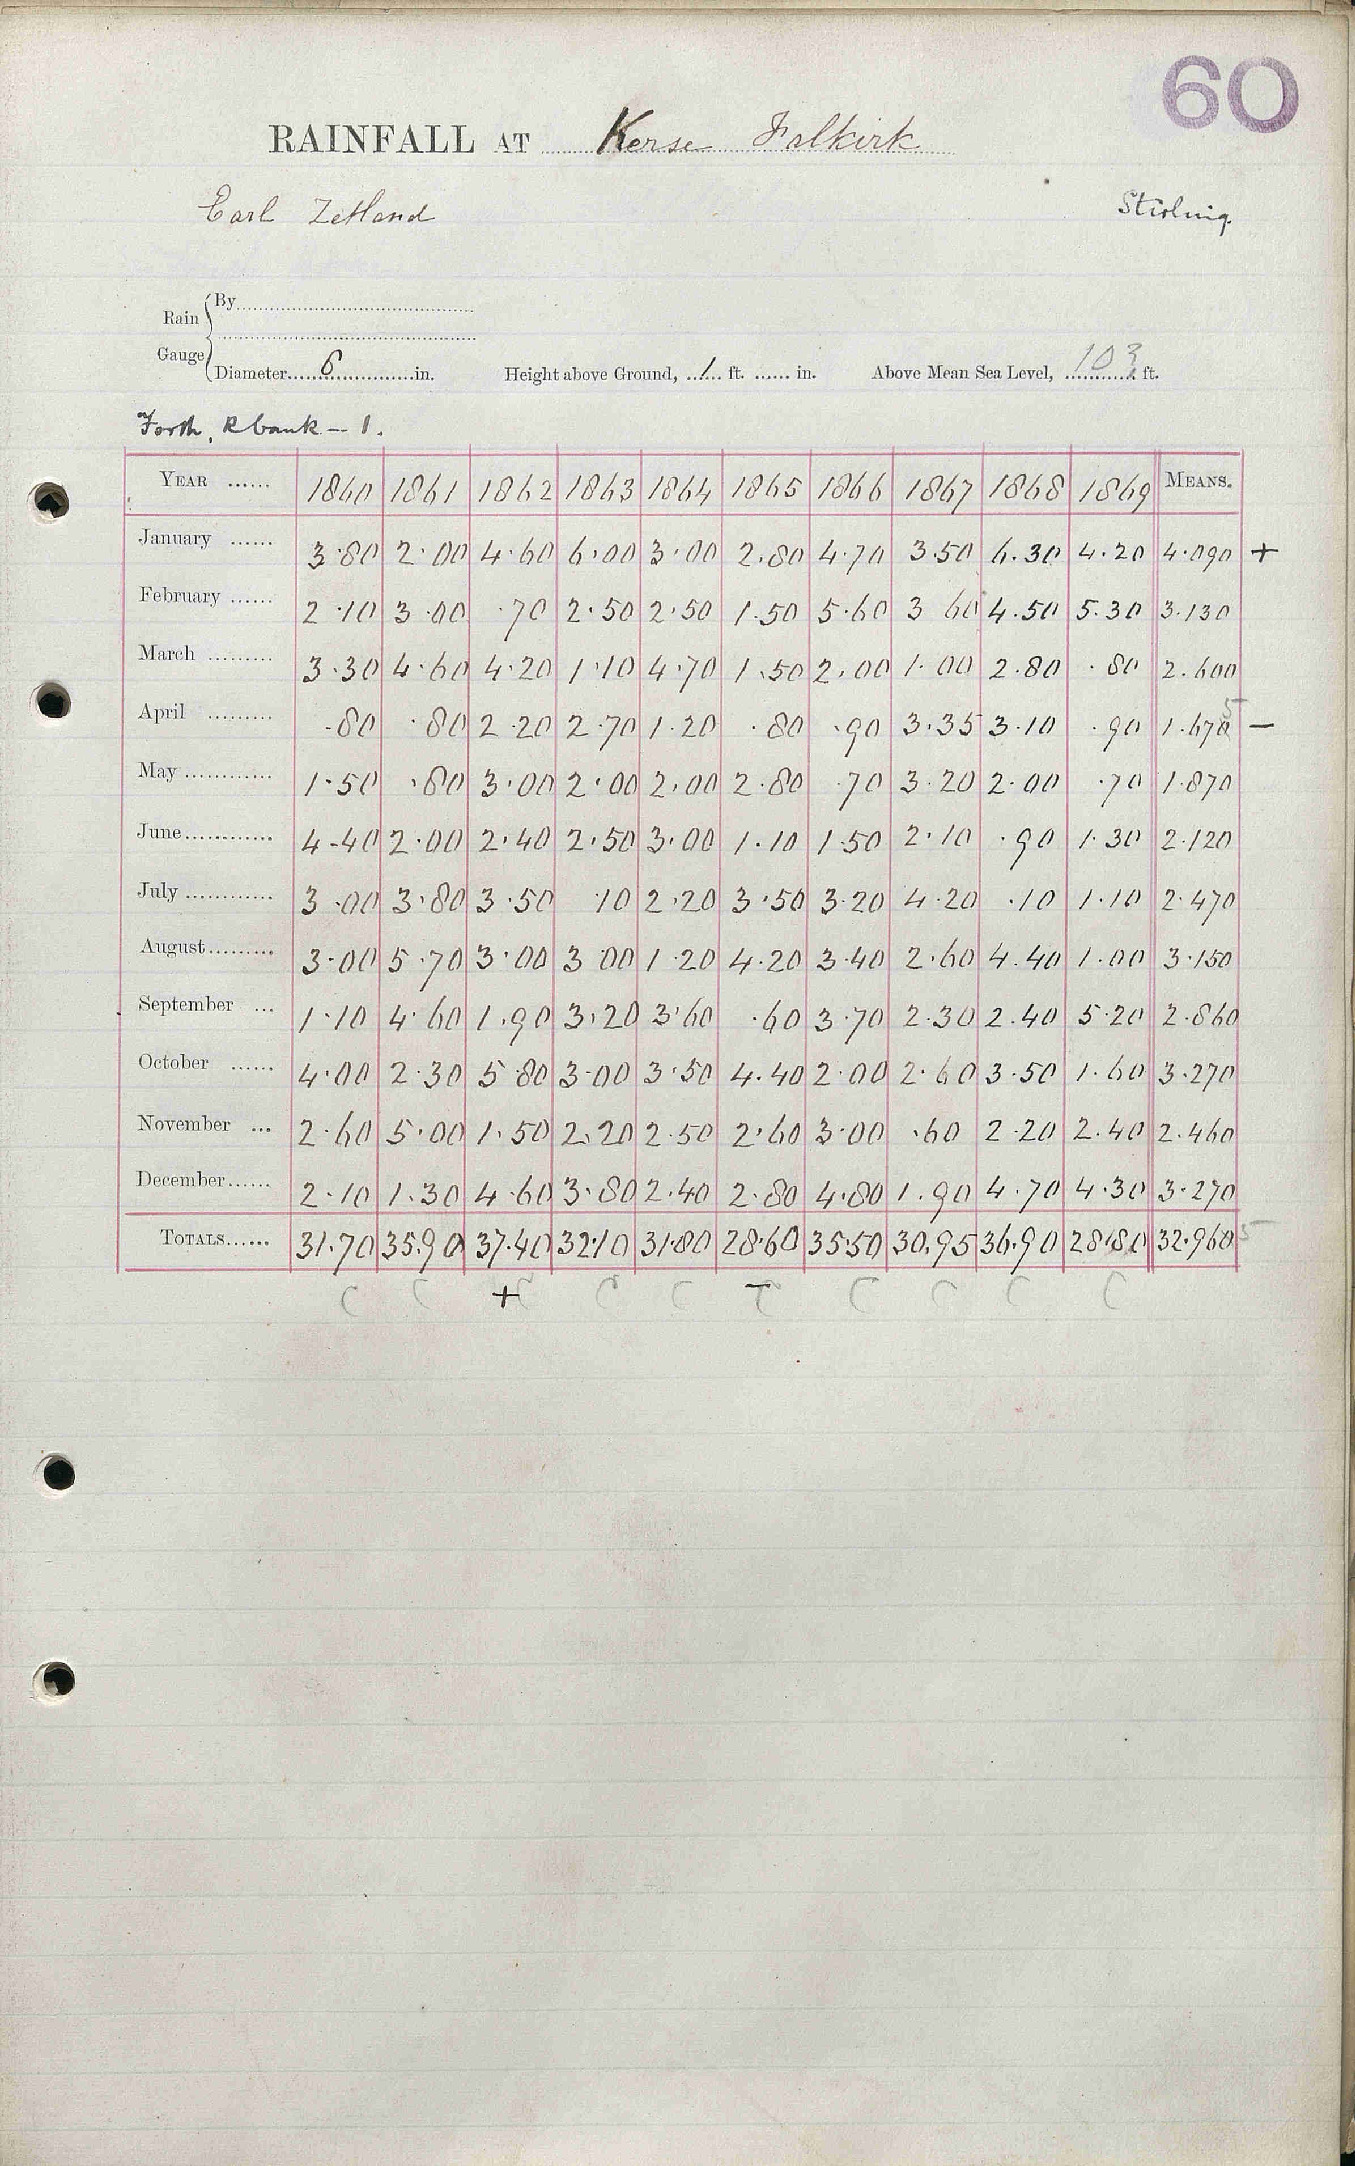 60
RAINFALL AT Kerse Falkirk
Earl Zetland Stirling.
Rain Gauge
By
Diameter 6 in. Height above Ground, 1 ft. in. Above Mean Sea Level, 103 ft.
Forth, R bank – 1.
YEAR 1860 1861 1862 1863 1864 1865 1866 1867 1868 1869 MEANS.
January 3.80 2.00 4.60 6.00 3.00 2.80 4.70 3.50 6.30 4.20 4.090 +
February 2.10 3.00 .70 2.50 2.50 1.50 5.60 3 60 4.50 5.30 3.130
March 3.30 4.60 4.20 1.10 4.70 1.50 2.00 1.00 2.80 .80 2.600
April .80 .80 2.20 2.70 1.20 .80 .90 3.35 3.10 .90 1.670 5 –
May 1.50 .80 3.00 2.00 2.00 2.80 .70 3.20 2.00 .70 1.870
June 4.40 2.00 2.40 2.50 3.00 1.10 1.50 2.10 .90 1.30 2.120
July 3.00 3.80 3.50 .10 2.20 3.50 3.20 4.20 .10 1.10 2.470
August 3.00 5.70 3.00 3.00 1.20 4.20 3.40 2.60 4.40 1.00 3.150
September 1.10 4.60 1.90 3.20 3.60 .60 3.70 2.30 2.40 5.20 2.860
October 4.00 2.30 5 80 3.00 3.50 4.40 2.00 2.60 3.50 1.60 3.270
November 2.60 5.00 1.50 2.20 2.50 2.60 3.00 .60 2.20 2.40 2.460
December 2.10 1.30 4.60 3.80 2.40 2.80 4.80 1.90 4.70 4.30 3.270
TOTALS 31.70 35.90 37.40 32.10 31.80 28.60 35.50 30.95 36.90 28.80 32.960 5
C C + C C C – C C C C C